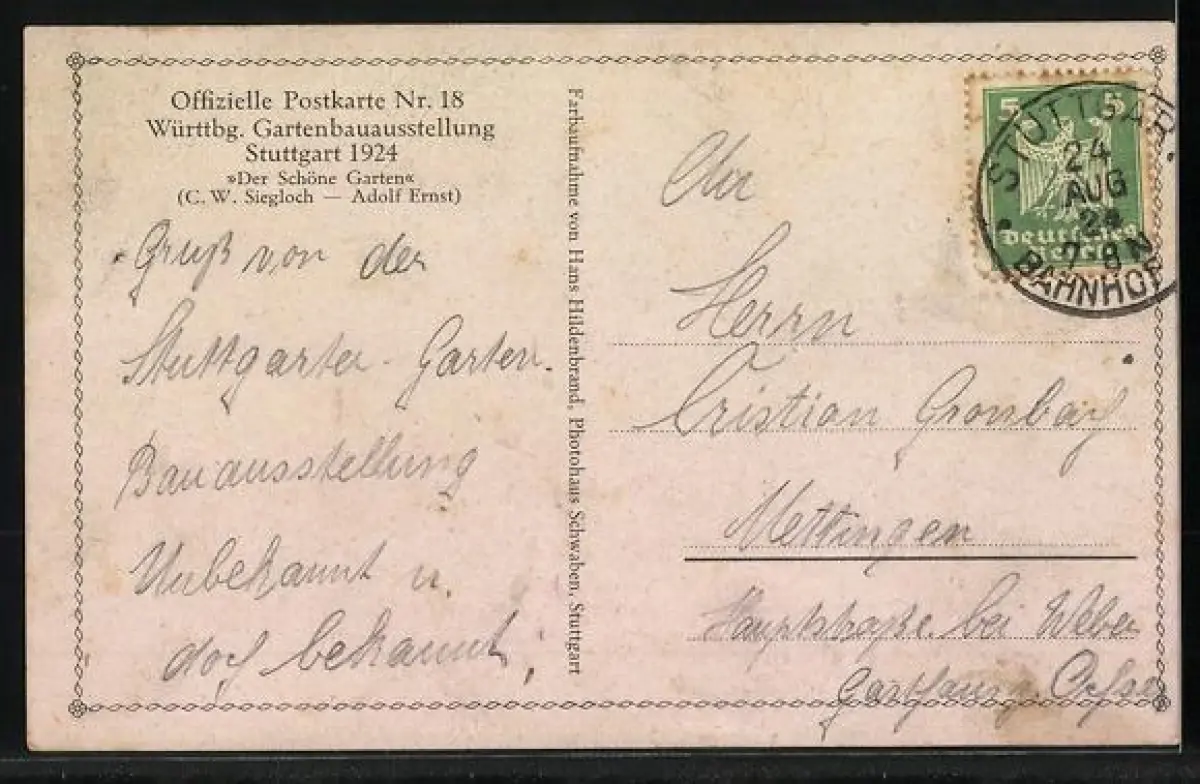 Offizielle Postkarte Nr. 18
Württbg. Gartenbauausstellung
Stuttgart 1924
»Der Schöne Garten«
(C. W. Siegloch — Adolf Ernst)
Gruß von der
Stuttgarter Garten.
Bauausstellung
Unbekannt u.
doch bekannt.
Farbaufnahme von Hans Hildenbrand, Photohaus Schwaben, Stuttgart
5 5
Deutsches
Reich
STUTTGART
24
AUG
24
7-8 N
BAHNHOF
An
Herrn
Cristian Gronbach
Mettingen
Hauptstraße bei Weber
Gasthaus z. Ochsen